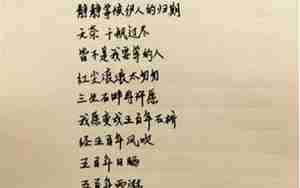 静静等候伊人的归期
无奈 千帆过尽
皆不是我要等的人
红尘滚滚太匆匆
三生石畔再许愿
我愿变成五百年石桥
经五百年风吹
五百年日晒
五百年雨淋